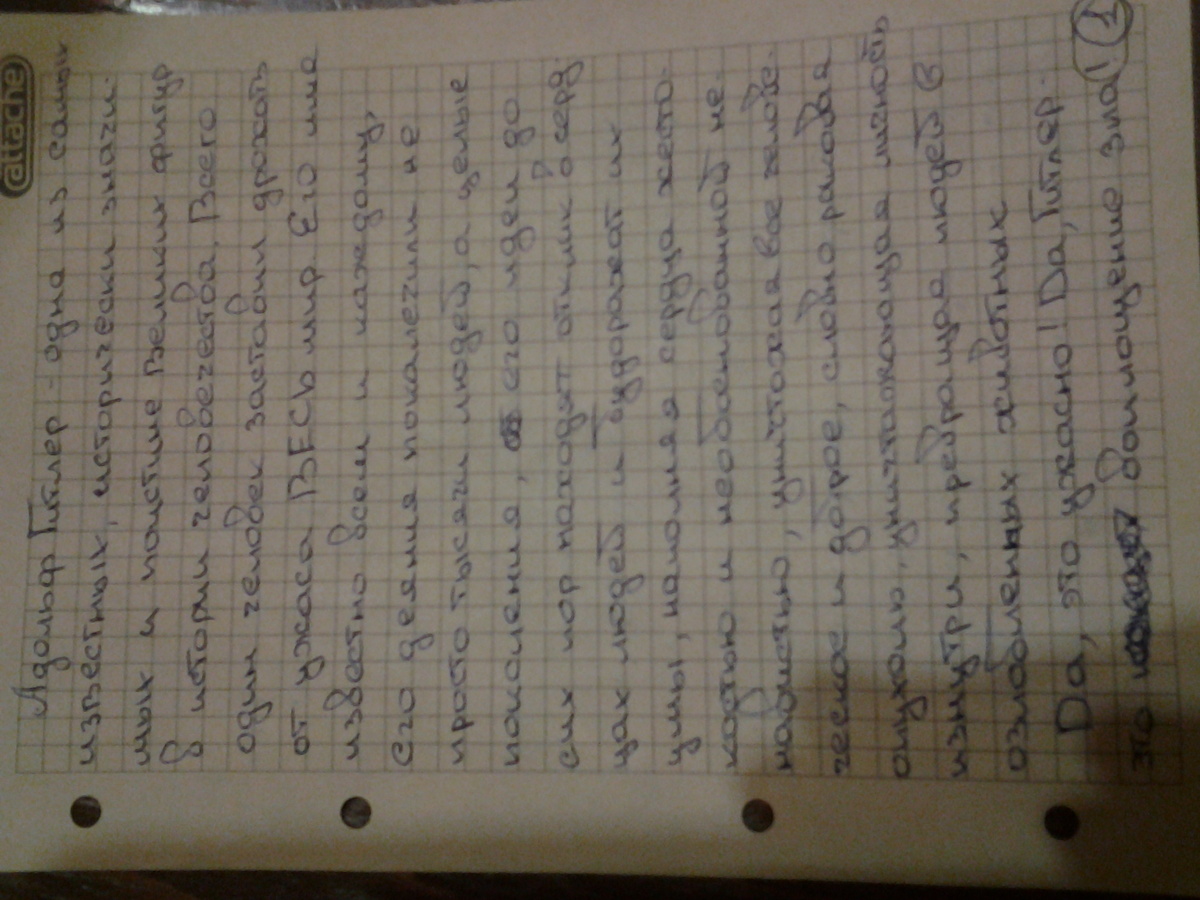 attache
Адольф Гитлер - одна из самых
известных, исторически значи-
мых и поистине Великих фигур
в истории человечества. Всего
один человек заставил дрожать
от ужаса ВЕСЬ мир. Его имя
известно всем и каждому,
его деяния покалечили не
просто тысячи людей, а целые
поколения, его идеи до
сих пор находят отклик в серд-
цах людей и будоражат их
умы, наполняя сердца жесто-
костью и необоснованной не-
навистью, уничтожая все челове-
ческое и доброе, словно раковая
опухоль, уничтожающая личность
изнутри, превращая людей в
озлобленных животных
Да, это ужасно! Да, Гитлер -
это воплощение зла! 1